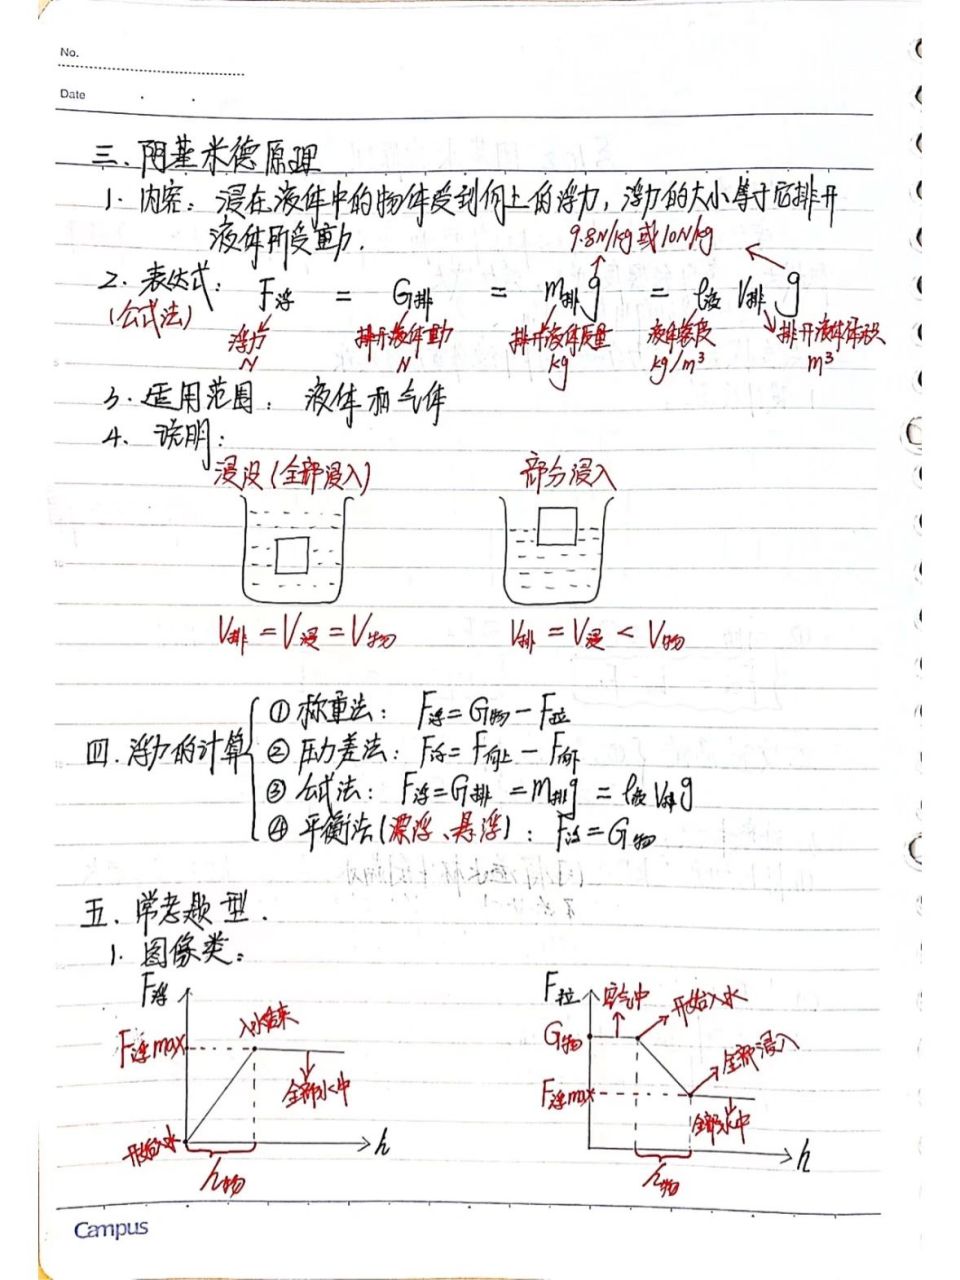 No.
Date
三.阿基米德原理
1. 内容：浸在液体中的物体受到向上的浮力，浮力的大小等于它排开
液体所受重力.
9.8N/kg或10N/kg
2. 表达式： F浮 = G排 = m排g = ρ液 V排 g
(公式法) 浮力 排开液体重力 排开液体质量 液体密度 排开液体体积
N N kg kg/m³ m³
3. 适用范围： 液体和气体
4. 说明：
浸没(全部浸入) 部分浸入
V排=V浸=V物 V排=V浸<V物
四.浮力的计算
① 称重法： F浮=G物-F拉
② 压力差法： F浮=F向上-F向下
③ 公式法： F浮=G排=m排g=ρ液V排g
④ 平衡法(漂浮、悬浮)： F浮=G物
五.常考题型.
1. 图像类：
F浮 F拉 空气中 开始入水
F浮max 入水结束 G物
全部水中 全部浸入
F浮max
全部水中
开始入水 h h
h物 h物
Campus